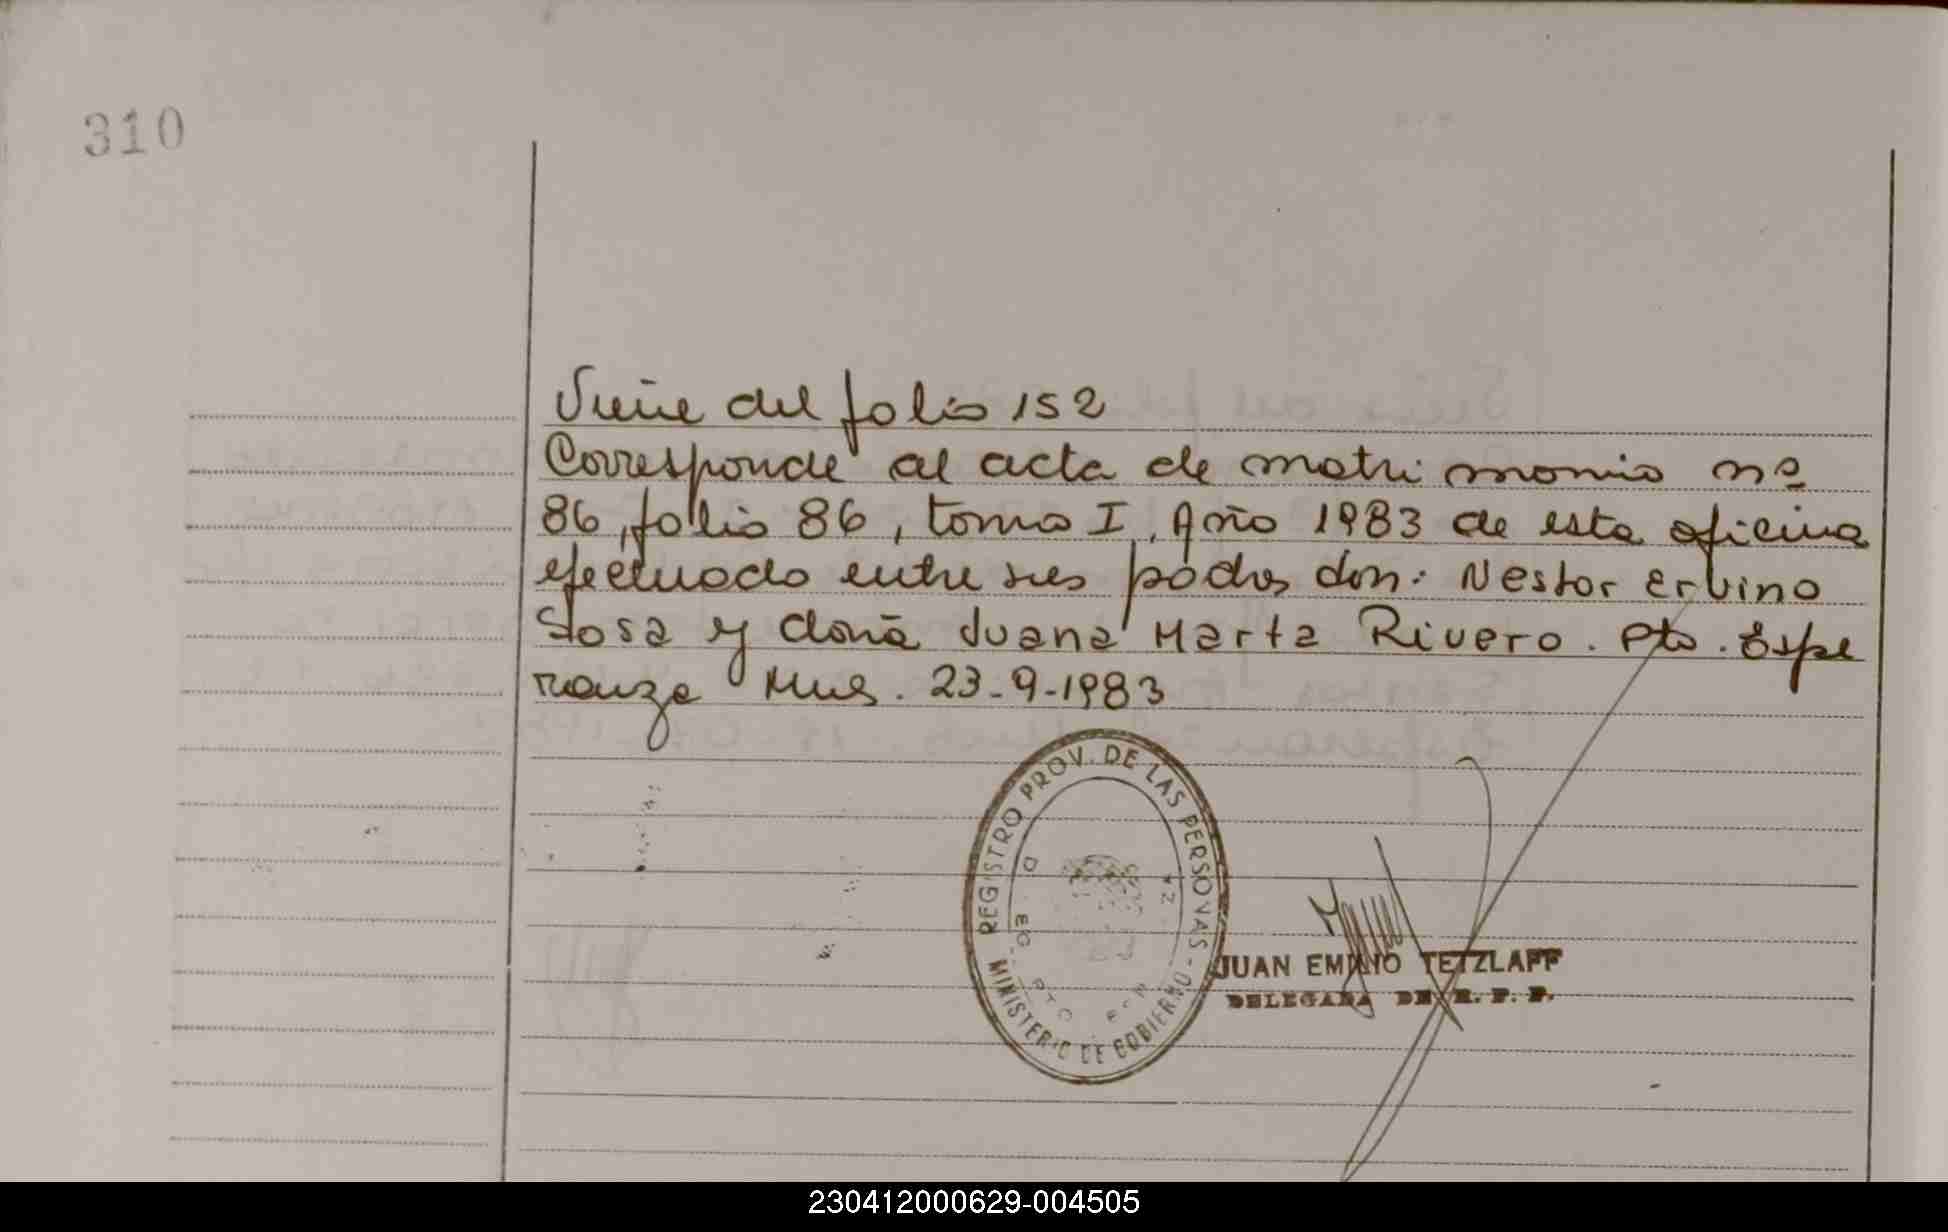 310
Viene del folio 152
Corresponde al acta de matrimonio nº
86, folio 86, tomo I, Año 1983 de esta oficina
efectuado entre sus padres don: Nestor Ervino
Sosa y doña Juana Marta Rivero. Pto. Espe
ranza Mnes. 23-9-1983
REGISTRO PROV. DE LAS PERSONAS - MINISTERIO DE GOBIERNO
JUAN EMILIO TETZLAFF
DELEGADA DE R. P. P.
230412000629-004505